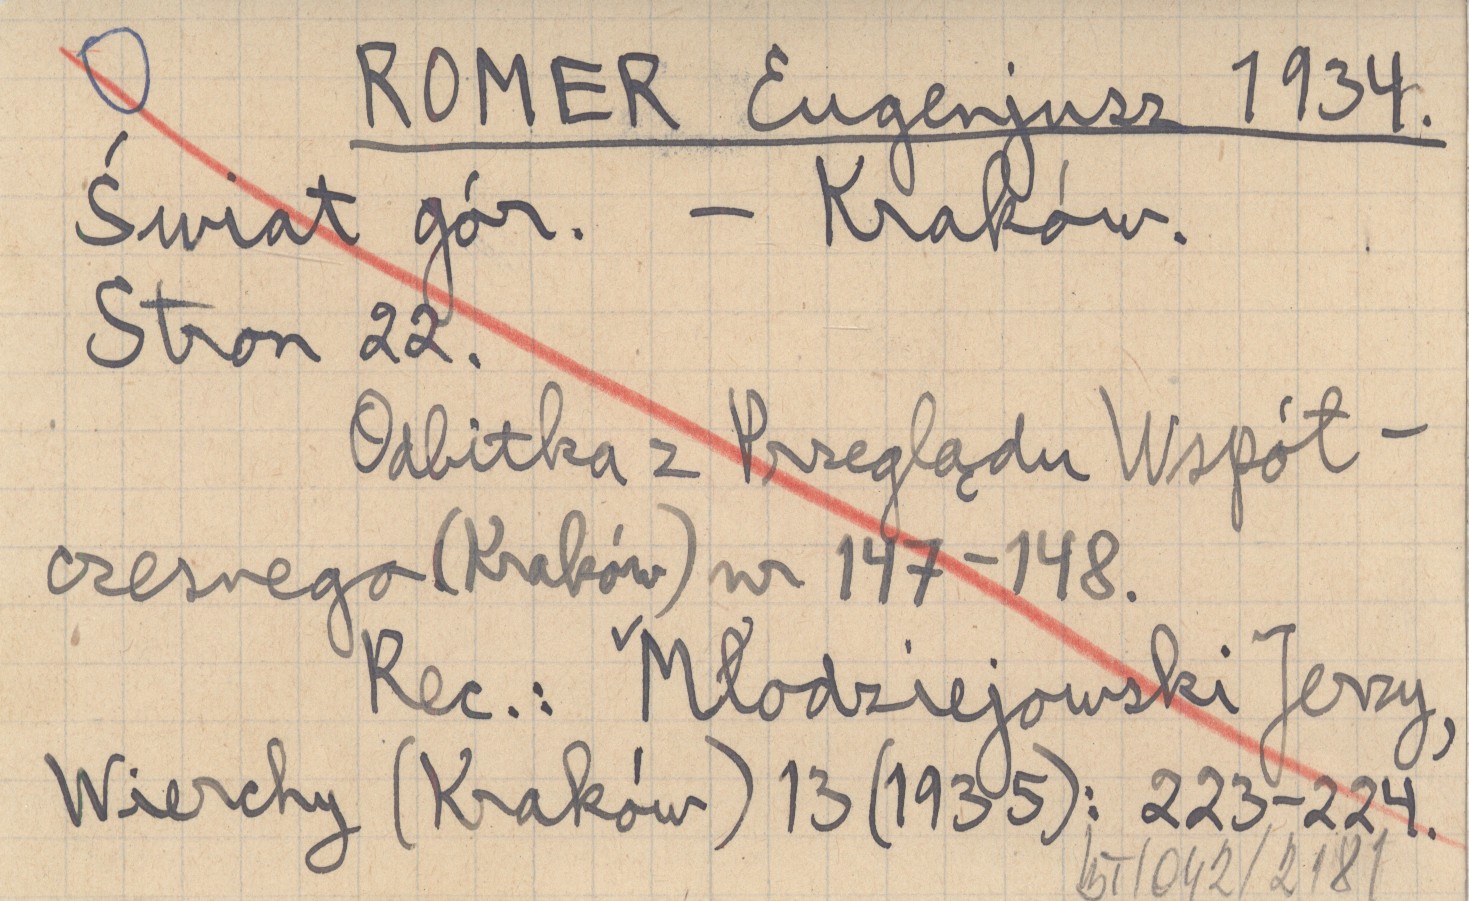 ROMER Eugenjusz 1934.
Świat gór. – Kraków.
Stron 22.
Odbitka z Przeglądu Współ-
czesnego (Kraków) nr 147-148.
Rec.: Młodziejowski Jerzy,
Wierchy (Kraków) 13 (1935): 223-224.
/042/2181